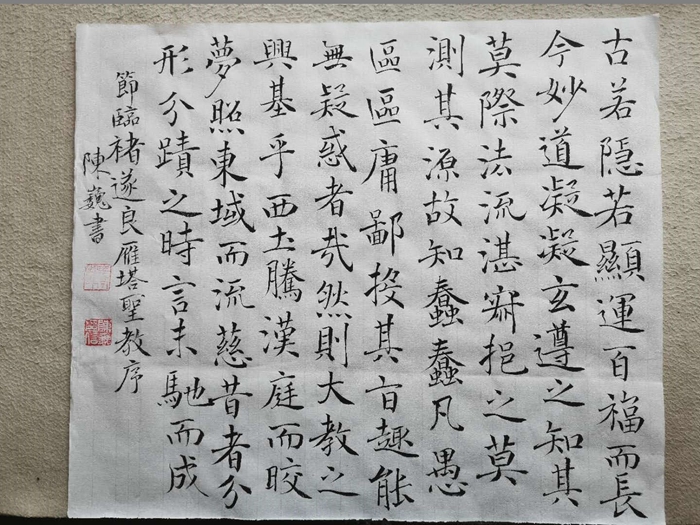 古若隱若顯運百福而長
今妙道凝凝玄遵之知其
莫際法流湛寂挹之莫
測其源故知蠢蠢凡愚
區區庸鄙投其旨趣能
無疑惑者哉然則大教之
興基乎西土騰漢庭而晈
夢照東域而流慈昔者分
形分蹟之時言未馳而成
節臨褚遂良雁塔聖教序
陳巍書